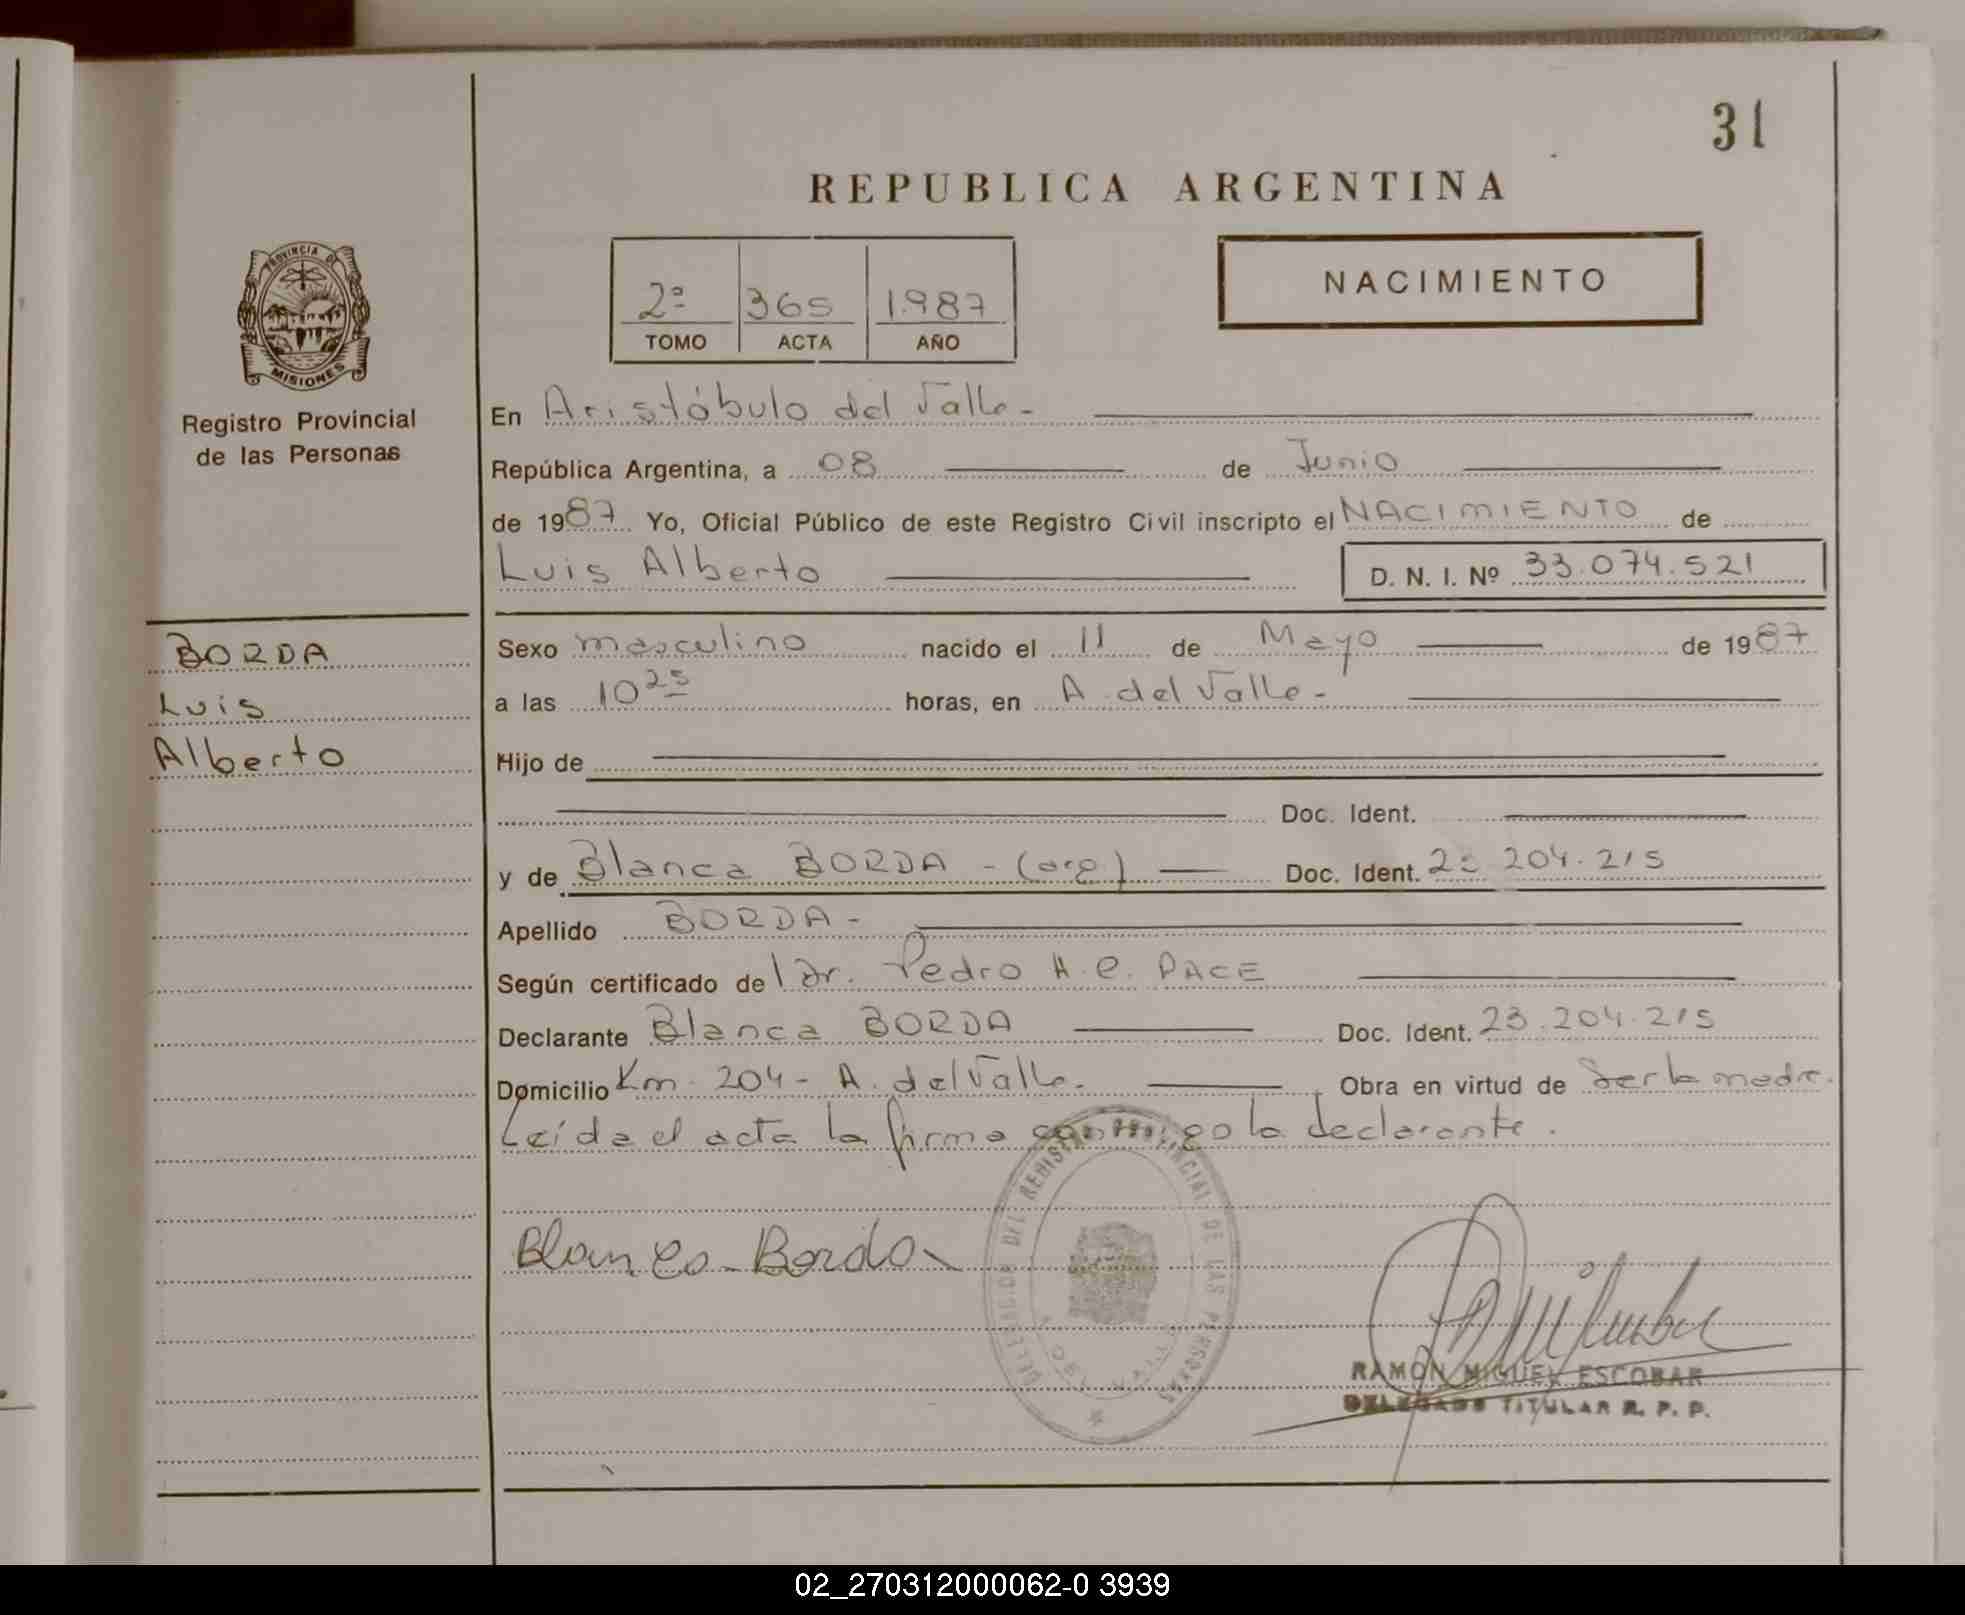 31
REPUBLICA ARGENTINA
PROVINCIA DE
MISIONES
Registro Provincial
de las Personas
2º 365 1.987
TOMO ACTA AÑO
NACIMIENTO
En Aristóbulo del Valle -
República Argentina, a 08 de Junio
de 1987 Yo, Oficial Público de este Registro Civil inscripto el NACIMIENTO de
Luis Alberto D. N. I. Nº 33.074.521
BORDA
Luis
Alberto
Sexo masculino nacido el 11 de Mayo de 1987
a las 10 25 horas, en A. del Valle -
Hijo de
Doc. Ident.
y de Blanca BORDA - (arg) Doc. Ident. 204.215
Apellido BORDA -
Según certificado del Dr. Pedro A. C. PACE
Declarante Blanca BORDA Doc. Ident. 23.204.215
Domicilio Km. 204 - A. del Valle. Obra en virtud de Ser la madre.
Leída el acta la firma conmigo la declarante.
Blanca Borda
DELEGACION DEL REGISTRO PROVINCIAL DE LAS PERSONAS
RAMON MIGUEL ESCOBAR
DELEGADO TITULAR R. P. P.
02_270312000062-0 3939